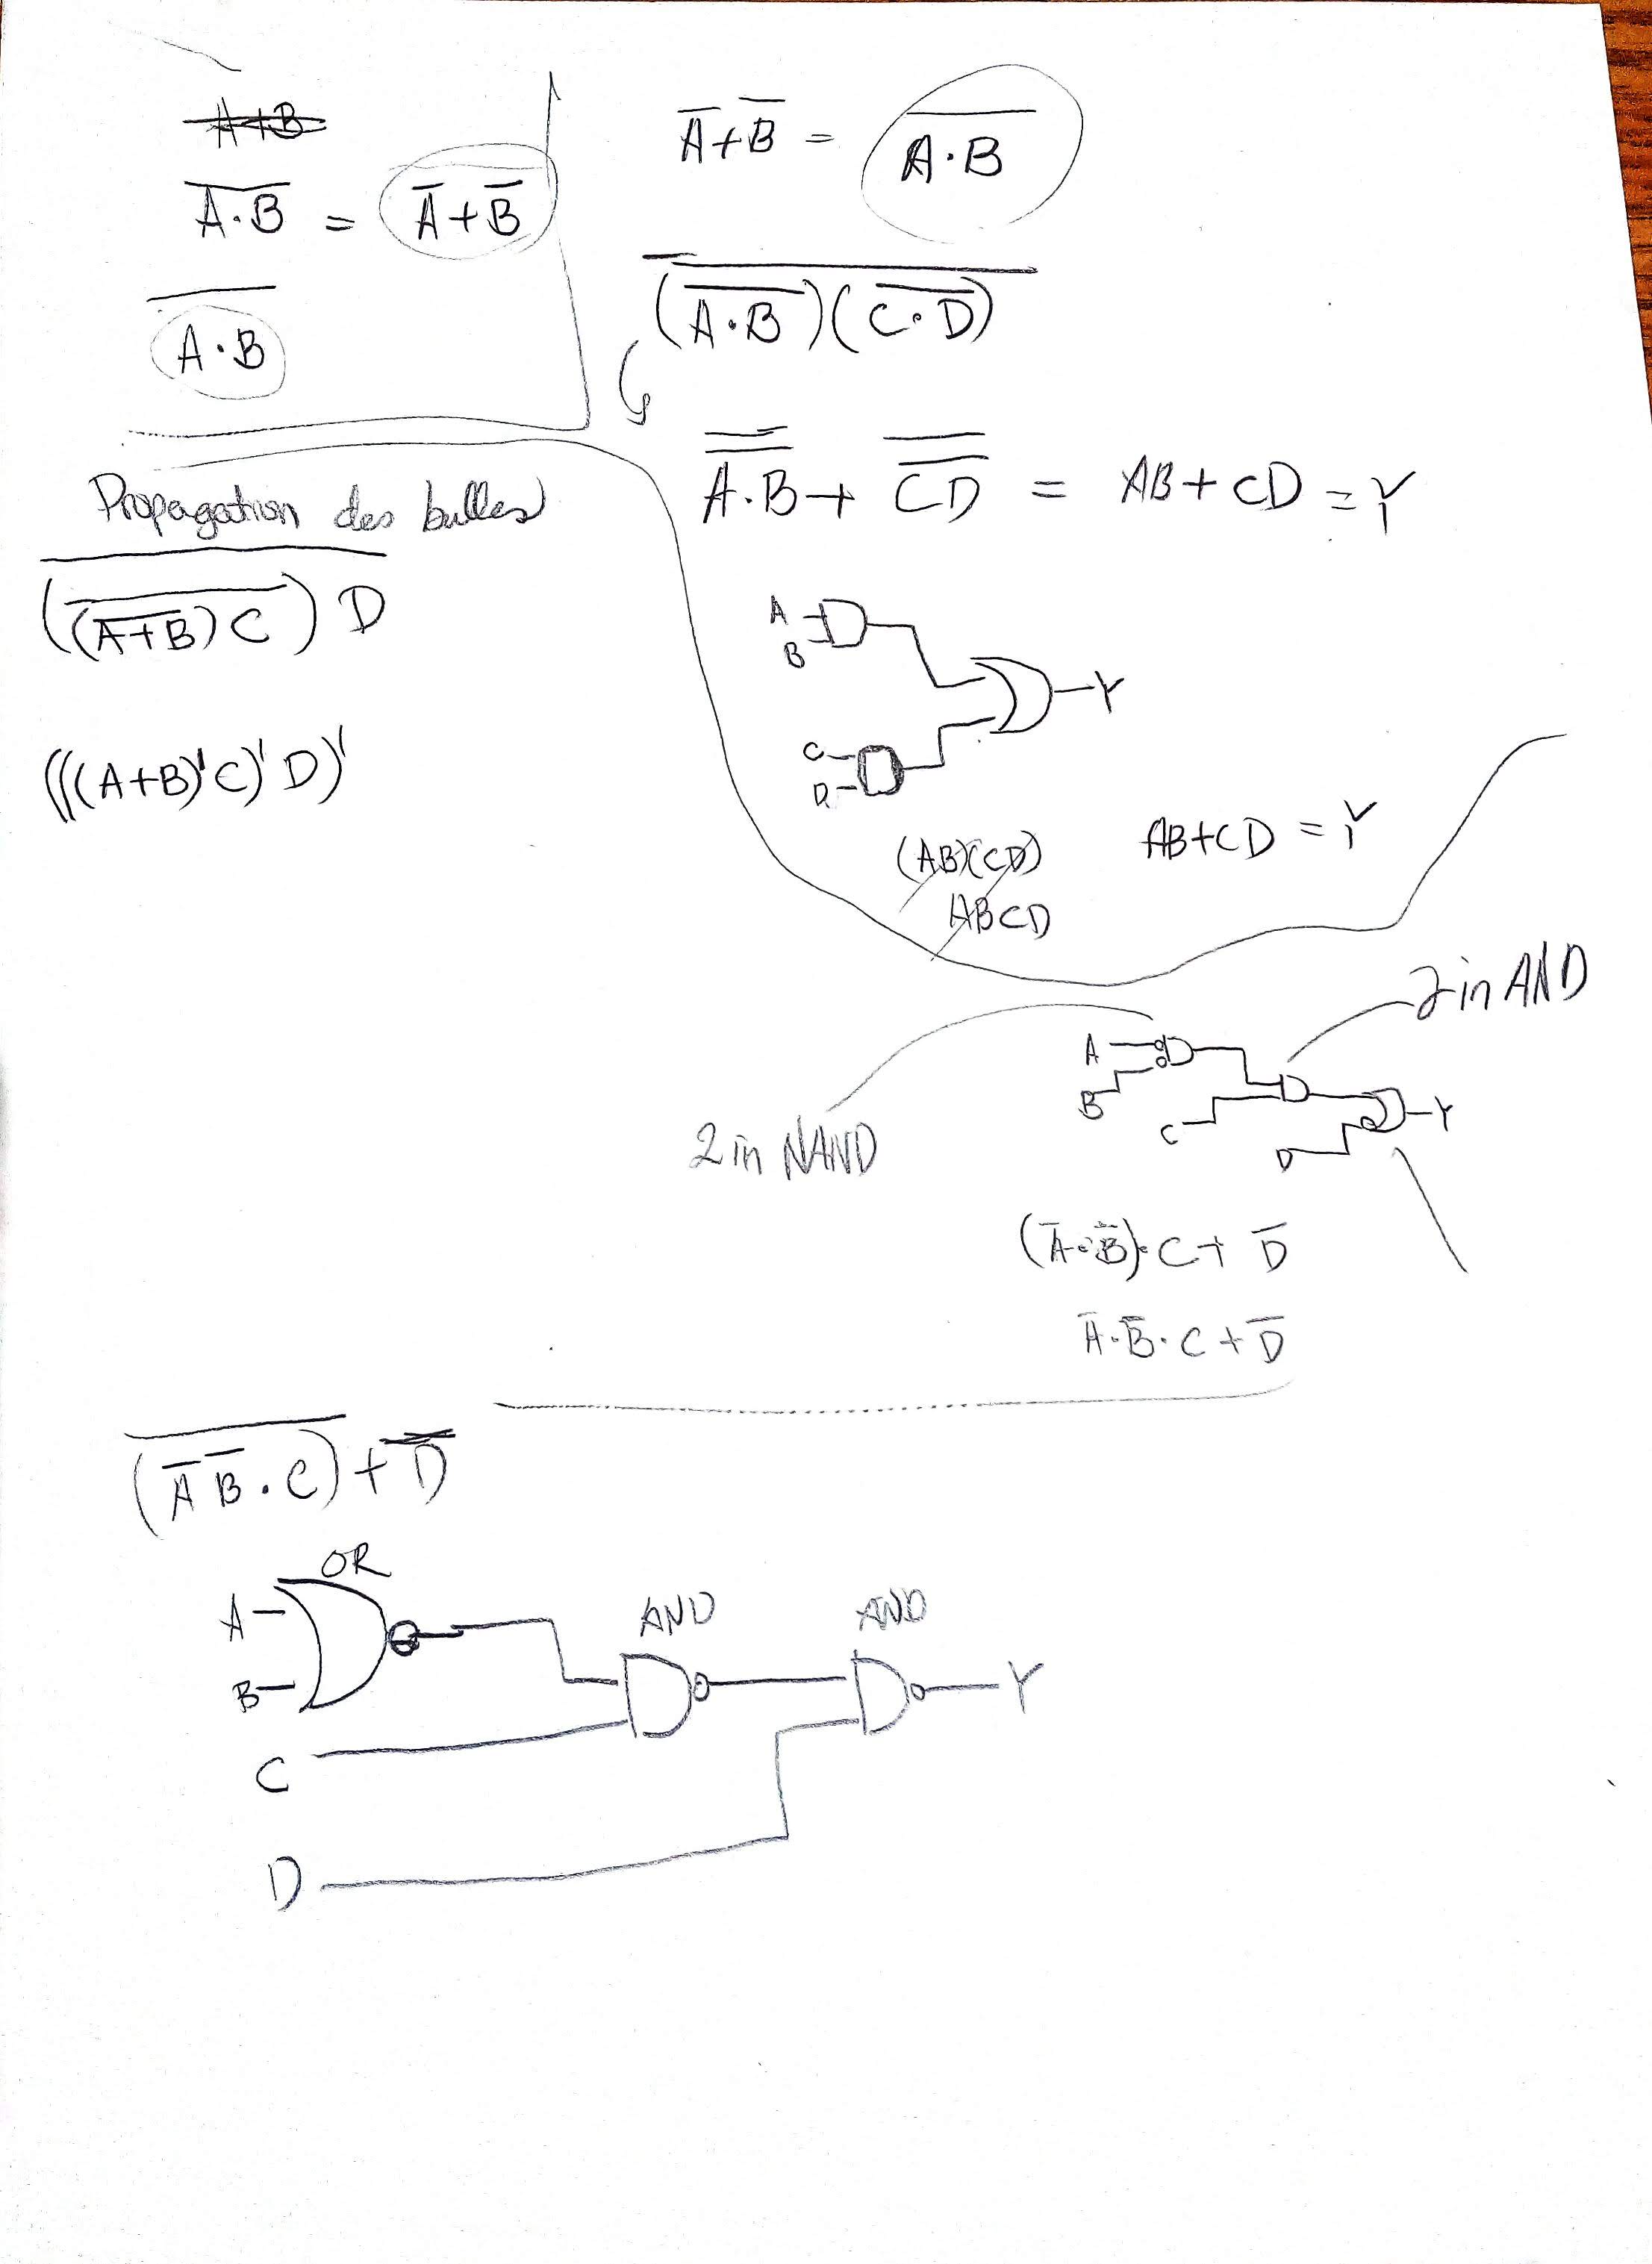 A+B
A̅·̅B̅ = A̅+B̅
A̅·̅B̅
A̅+B̅ = A̅·̅B̅
\overline{(\overline{A·B})(\overline{C·D})}
\overline{\overline{A·B}} + \overline{\overline{CD}} = AB + CD = Y
A
B
Y
C
D
(AB)(CD)
ABCD
AB+CD = Y
Propagation des bulles
\overline{(\overline{(\overline{A+B})C})D}
(((A+B)'C)'D)'
2 in AND
A
B
C
D
Y
2 in NAND
(A̅·B̅)·C+D̅
A̅·B̅·C+D̅
\overline{(A̅ B̅·C)}+D̅
OR
A
B
AND
AND
Y
C
D